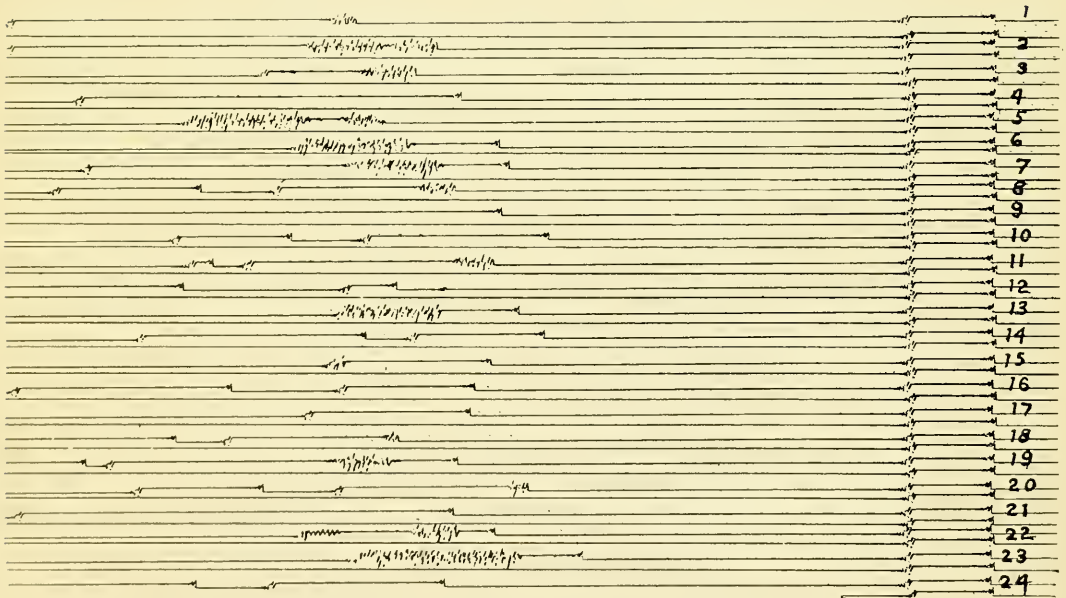 1
2
3
4
5
6
7
8
9
10
11
12
13
14
15
16
17
18
19
20
21
22
23
24